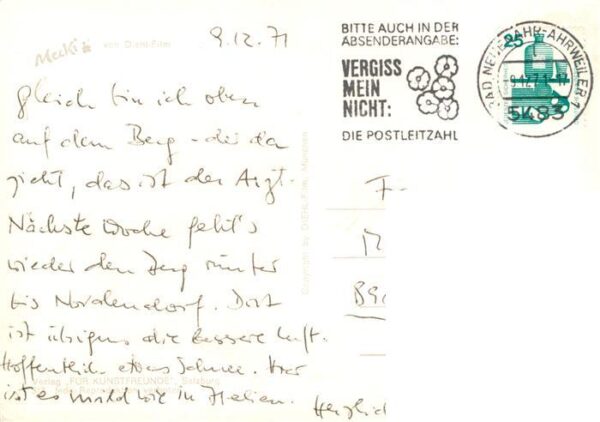 Mecki
von Diehl-Film
9.12.71
gleich bin ich oben
auf dem Berg - der da
zieht, das ist der Arzt.
Nächste Woche geht's
wieder den Berg runter
bis Nordendorf. Dort
ist übrigens die bessere Luft.
Hoffentlich etwas Schnee. Hier
ist es mild wie in Italien.
Herzlich
Verlag „FÜR KUNSTFREUNDE", Salzburg
Copyright by DIEHL-Film, München
BITTE AUCH IN DER
ABSENDERANGABE:
VERGISS
MEIN
NICHT:
DIE POSTLEITZAHL
BAD NEUENAHR-AHRWEILER 1
9.12.71-17
5483
25
F
89